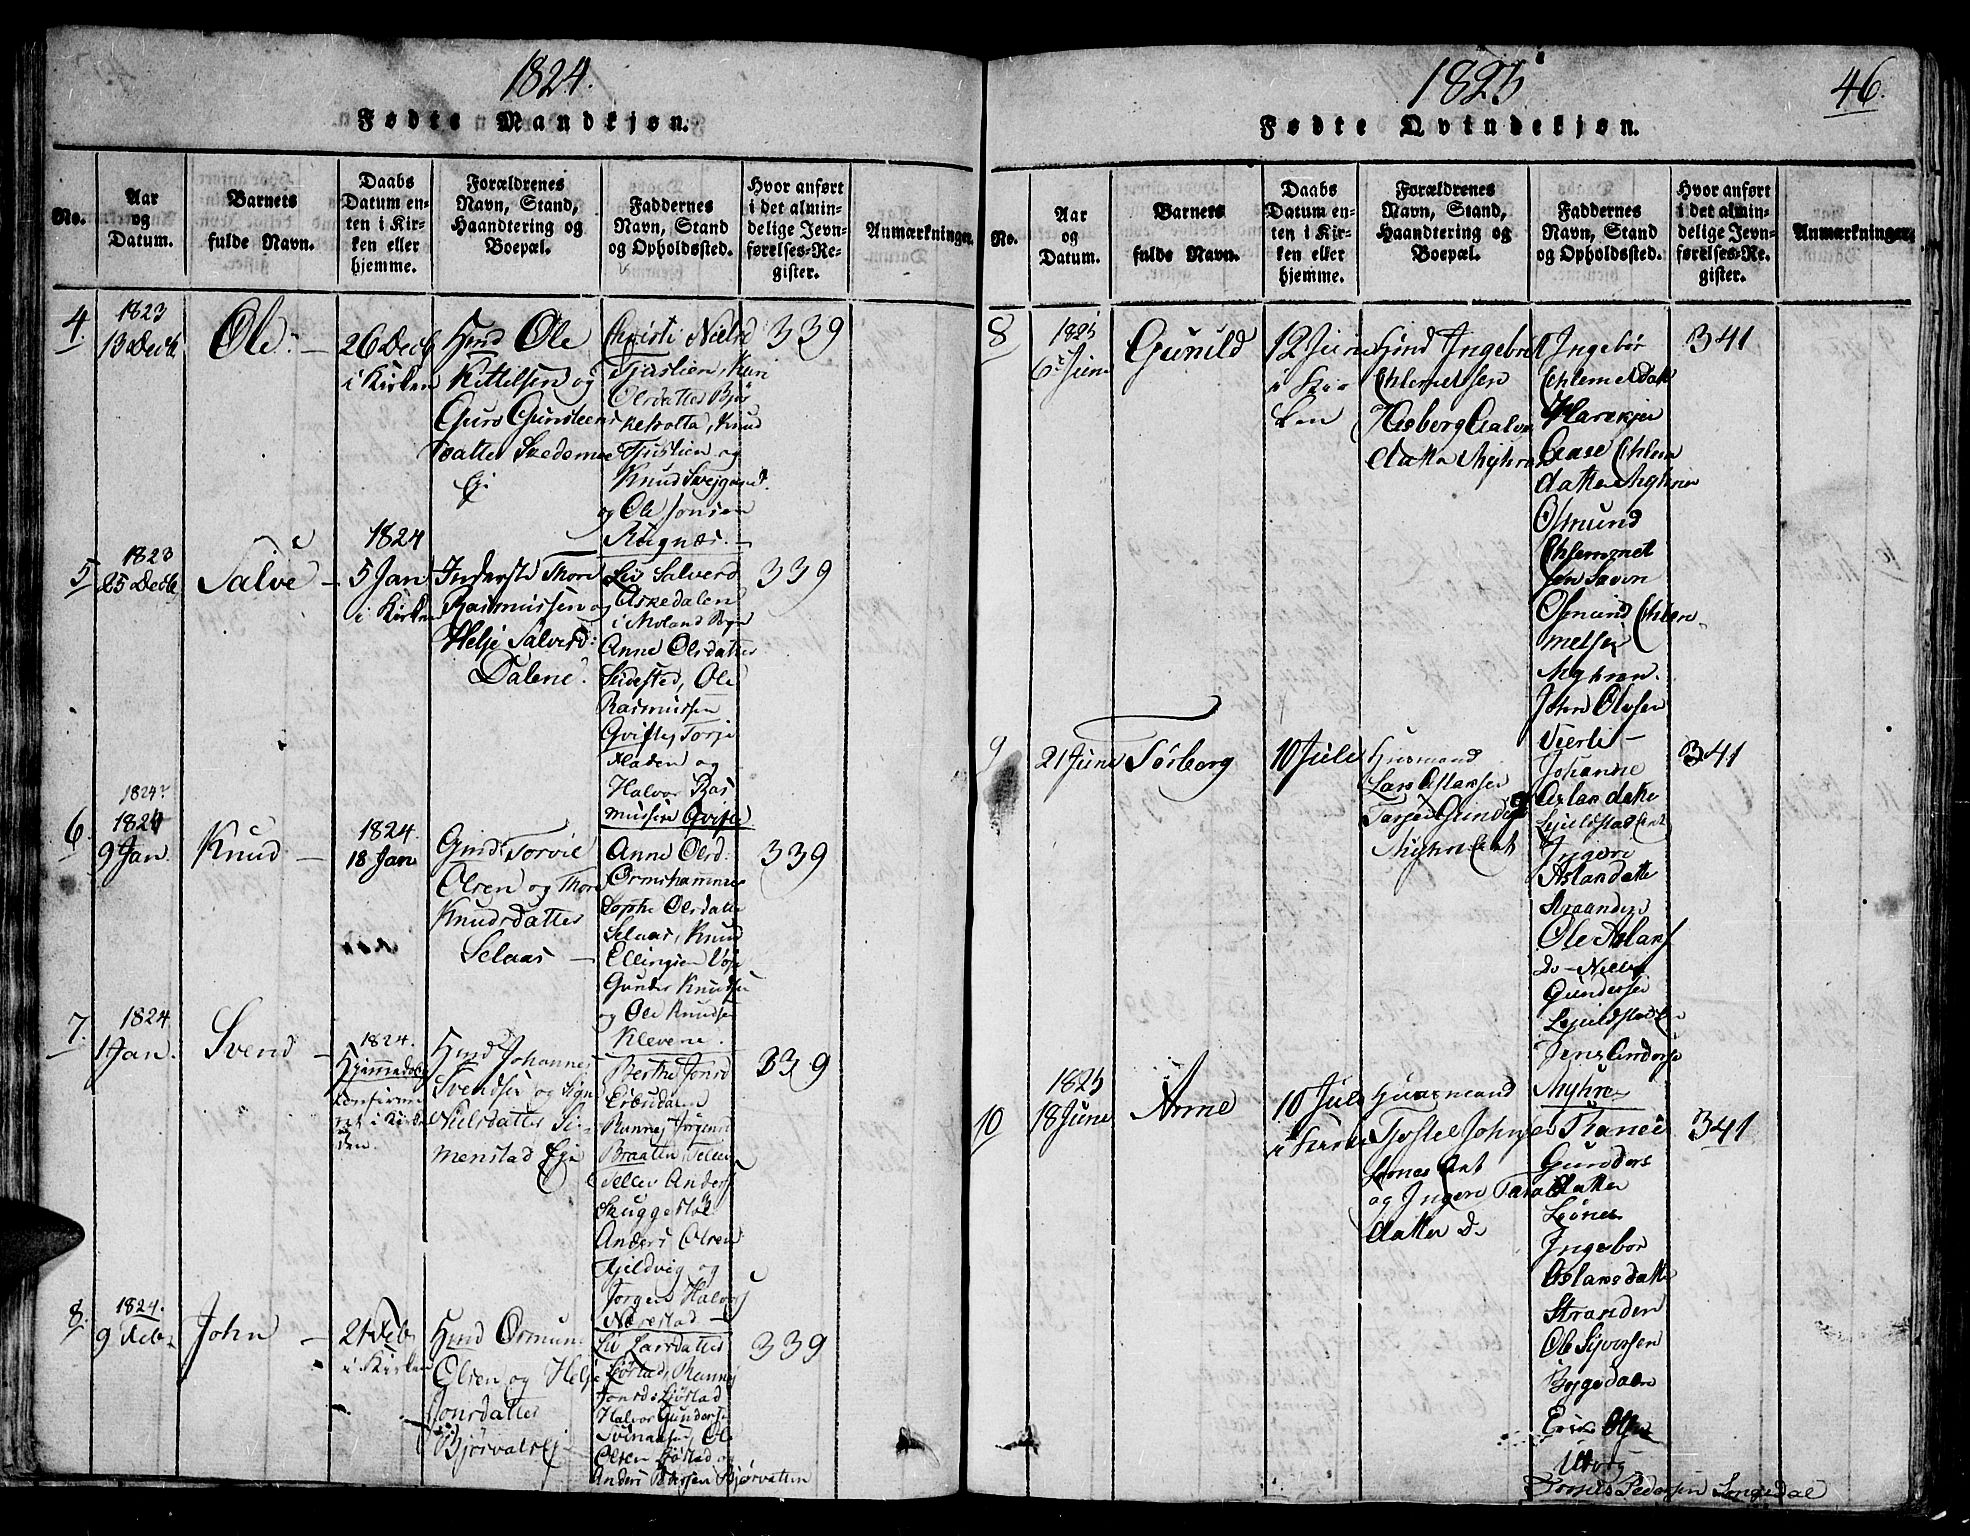 1824.
Fødte Mandkjøn.
No.
Aar
og
Datum.
Barnets
fulde Navn.
Daabs
Datum en-
ten i Kir-
ken eller
hjemme.
Forældrenes
Navn, Stand,
Haandtering og
Boepæl.
Faddernes
Navn, Stand
og Opholdssted.
Hvor anført
i det almin-
delige Jevn-
førelses-Re-
gister.
Anmærkninger.
4.
1823
13 Decb
Ole
26 Decb
i Kirken
Hmd Ole
Kittelsen og
Guro Gunsteens
datter
Christi Niels
Tjuslien, Kari
Olsdatter Bjør
ketvotta, Knud
Tjuslien og
Knud
og Ole Jonsen
Rugnæs.
339
5
1823
25 Decb
Salve
1824
5 Jan
i Kirken
Inderste Thore
Rasmussen og
Helje Salvesd:
Dalene.
Liv Salvesd
Askedalen
i Moland Sogn
Anne Olsdatter
Ole
Rasmussen
Qvifte, Torje
Fladen og
Halvor Ras
mussen Qvifte
339
6.
1824
1824
9 Jan.
Knud
1824.
18 Jan
Gmd Torvil
Olsen og Thore
Knudsdatter
Selaas
Anne Olsd.
Ormshammer
Sophe Olsdatter
Selaas, Knud
Ellingsen
Gunder Knudsen
og Ole Knudsen
Klevene.
339
7.
1824
1 Jan.
Svend
1824.
Hjemmedøbt
confirme
ret i Kir
ken.
Hmd Johannes
Svendsen og Signe
Nielsdatter Si-
menstad Eje
Berthe Jonsd
Eibudalen
Ranney Jørgens
Braaten, Tellev
Tellev Anders
Skuggestøl
Anders Olsen
Kjeldvig og
Jørgen Halvors
Nærestad
339
8.
1824.
9 Feb.
John
21 Feb
i Kirken
Hmd Osmun
Olsen og Helje
Jonsdatter
Bjørvatsej
Liv Larsdatter
Sjøstad, Ranney
Jonsd Sjøstad
Halvor Gunders
Svenaasen, Ole
Olsen Sjøstad og
Anders Bjørvatten
339
1825
46.
Fødte Qvindekjøn.
No.
Aar
og
Datum.
Barnets
fulde Navn.
Daabs
Datum en-
ten i Kir-
ken eller
hjemme.
Forældrenes
Navn, Stand,
Haandtering og
Boepæl.
Faddernes
Navn, Stand
og Opholdssted.
Hvor anført
i det almin-
delige Jevn-
førelses-Re-
gister.
Anmærkninger.
8
1825
6te June
Gunild
12 June
i Kir
ken
Gmd Ingebret
Chlemetsen
Asberg Salve
datter Myhren
Ingebor
Chlemetdat
Harekjer
Aase Chlem
datter Myhren
Osmund
Chlemmet
sen Saven
Osmund Chlem-
metsen
Myhren.
John Olsen
Veerli
341
9
21 June
Torborg
10 Jule
Husmand
Lars Aslaksen
Targer
Myhren Eiet
Johanne
Aslandatter
Ingere
Aslandatter
Straanden
Ole Aslans
Do
Gundersen
Jens Anders
Myhre
341
10
1825
18 June
Anne
10 Jule
i Kirke
Huusmand
Tjøstel Johns
Løvnes Eiet
og Ingere Tara
datter Do
Ranei
Gunders
datter
Løvnes
Ingebor
Aslansdatter
Stranden
Ole Syversen
Bøgedalen
Olsen
Pedersen Songedal
341